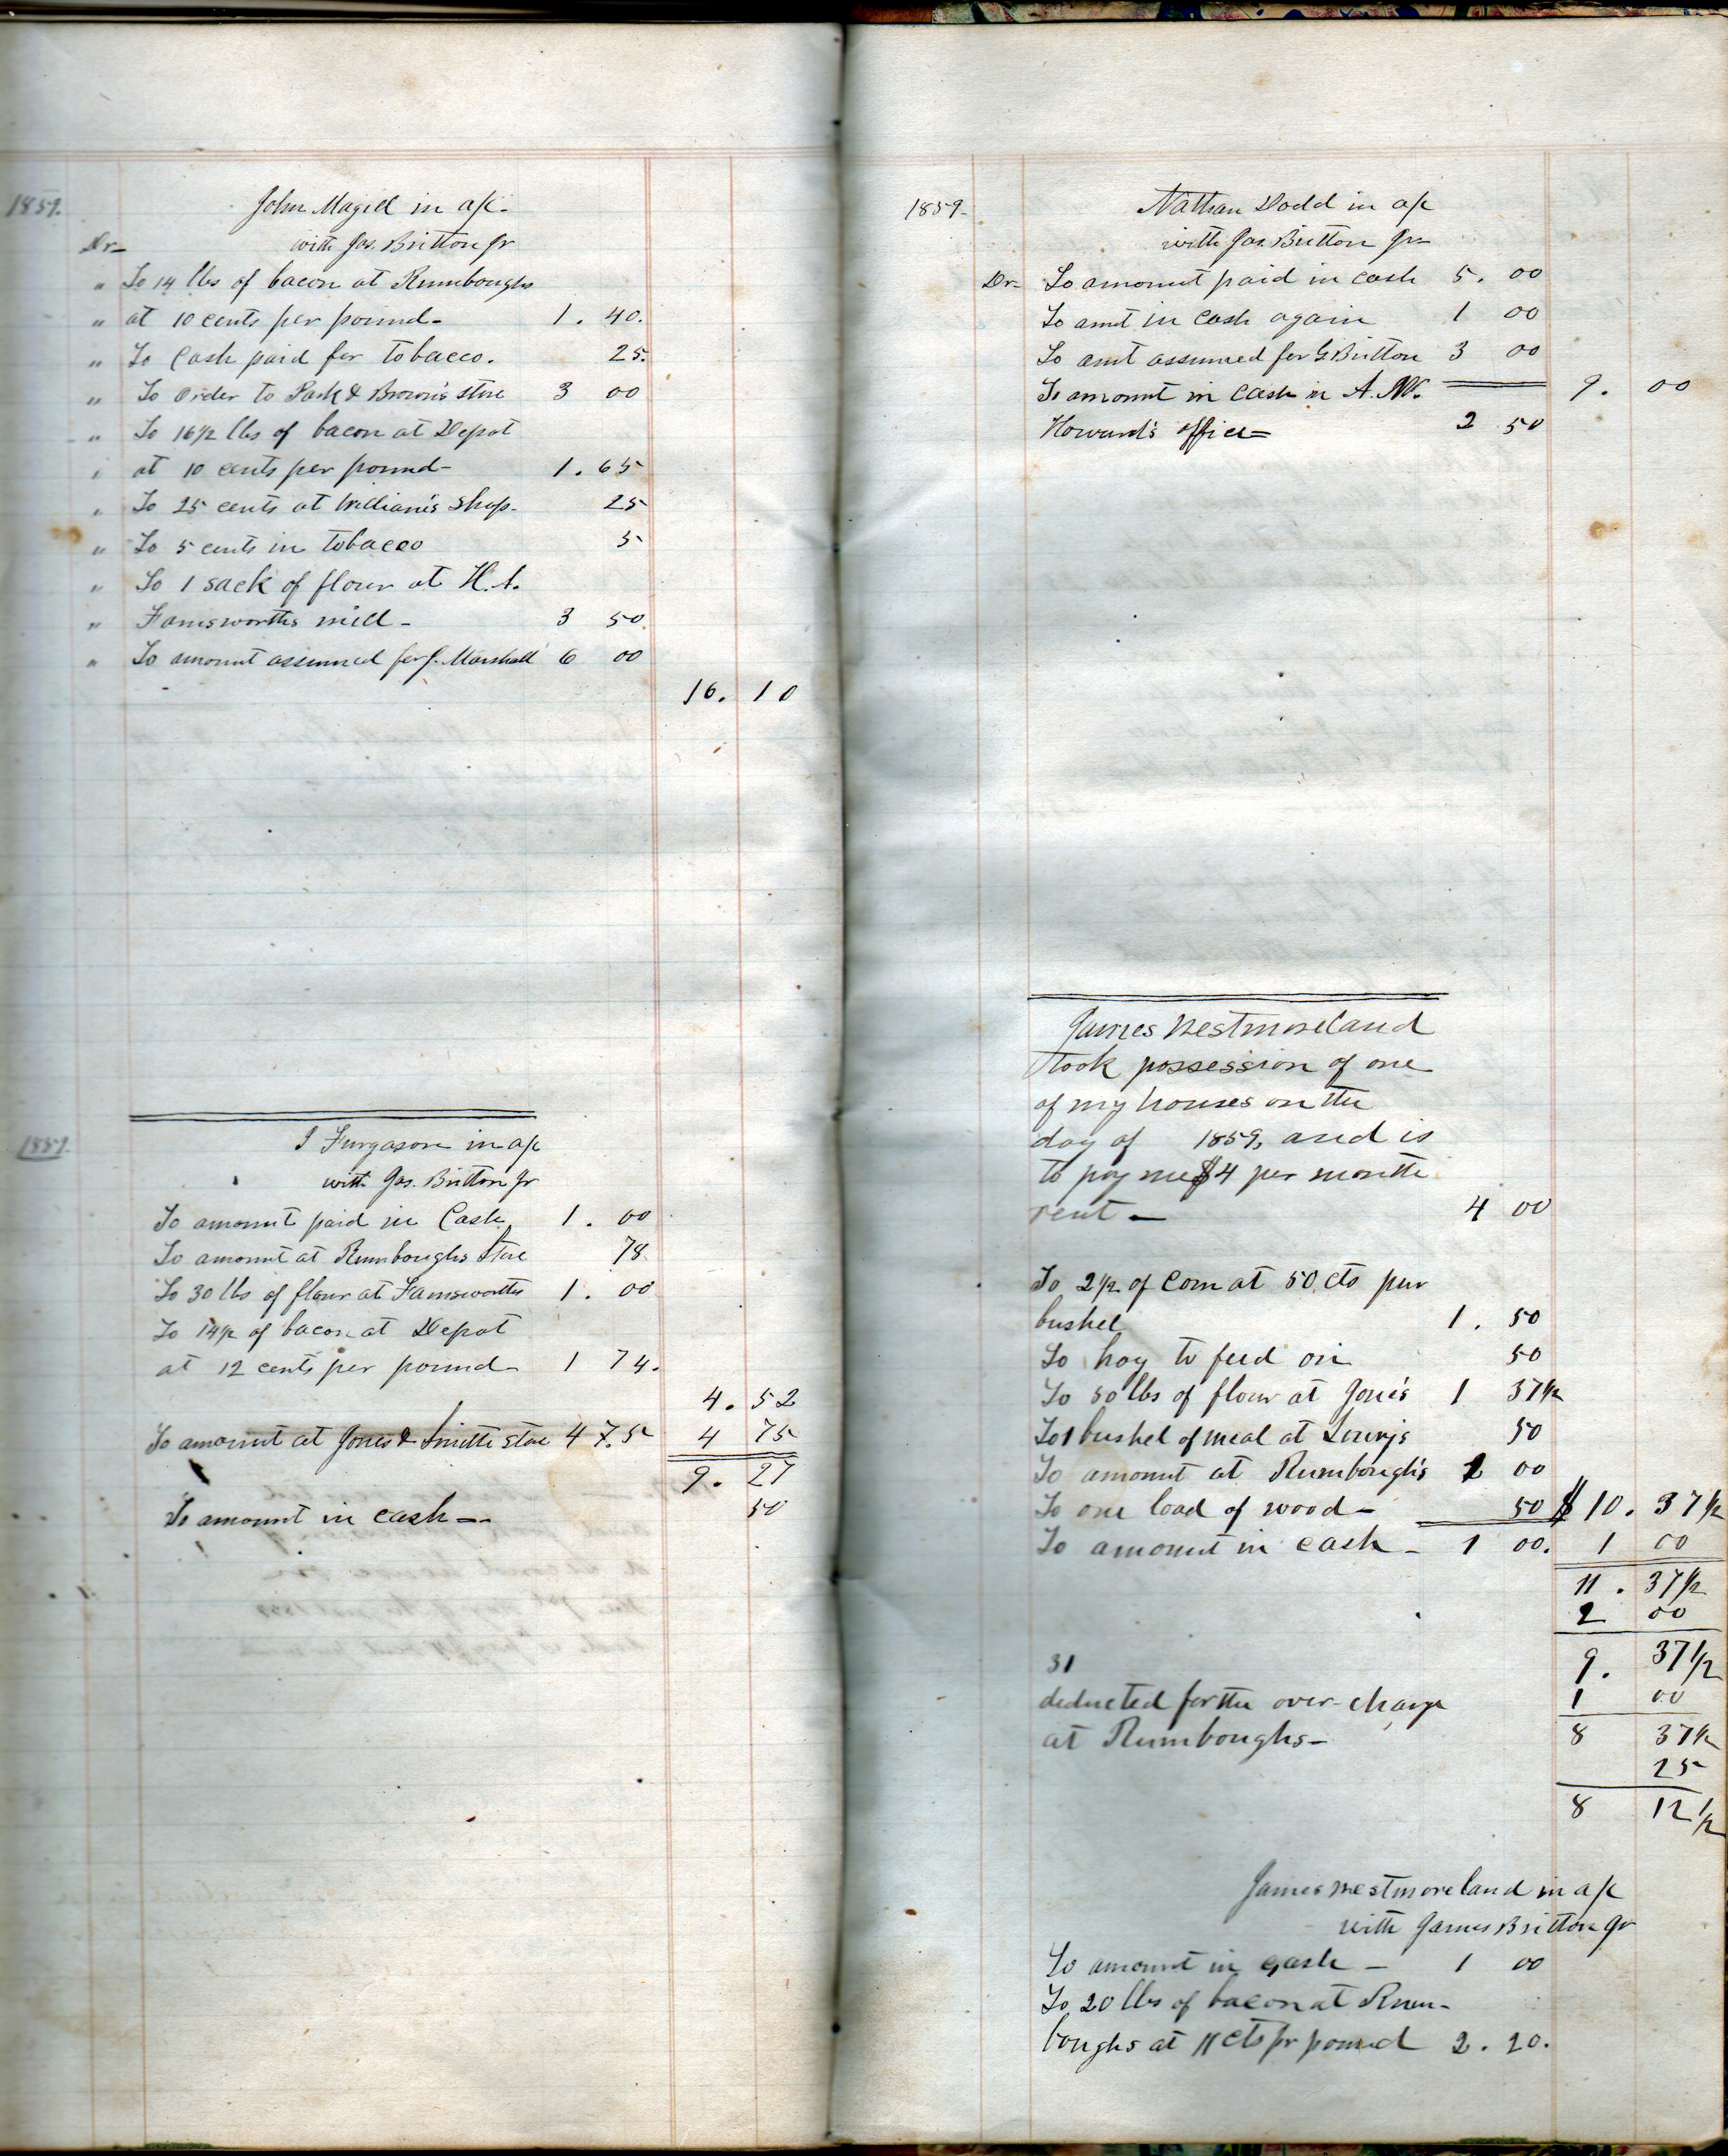 1859.
John Magill in a/c.
Dr- with Jas. Britton Jr
" To 14 lbs of bacon at Rumboughs
" at 10 cents per pound- 1. 40.
" To Cash paid for tobacco. 25.
" To order to Park & Brown's store 3 00
" To 16 1/2 lbs of bacon at Depot
" at 10 cents per pound- 1. 65
" To 25 cents at William's shop- 25
" To 5 cents in tobacco 5
" To 1 sack of flour at H. A.
" Farnsworths mill- 3 50
" To amount assumed for J. Marshall 6 00
16. 10
1859.
I Furgason in a/c
with Jas. Britton Jr
To amount paid in Cash 1. 00
To amount at Rumboughs Store 78
To 30 lbs of flour at Farnsworths 1. 00
To 14 1/2 of bacon at Depot
at 12 cents per pound- 1 74.
4. 52
To amount at Jones & Smiths store 4 75 4 75
9. 27
To amount in cash-- 50
1859-
Nathan Dodd in a/c
with Jas. Britton Jr-
Dr- To amount paid in cash 5. 00
To amt in cash again 1 00
To amt assumed for G Britton 3 00
To amount in cash in A. W. 9. 00
Howard's office= 2 50
James Westmoreland
took possession of one
of my houses on the
day of 1859, and is
to pay me $4 per month
rent- 4 00
To 2 1/2 of Corn at 50 cts pur
bushel 1. 50
To hay to feed on 50
To 50 lbs of flour at Jone's 1 37 1/2
To 1 bushel of meal at Lowry's 50
To amount at Rumbough's 2 00
To one load of wood- 50 $10. 37 1/2
To amount in cash- 1 00. 1 00
11. 37 1/2
2 00
9. 37 1/2
31
1 00
deducted for the over-charge
8 37 1/2
at Rumboughs-
25
8 12 1/2
James Westmoreland in a/c
with James Britton Jr
To amount in cash- 1 00
To 20 lbs of bacon at Rum-
boughs at 11 cts pr pound 2. 20.